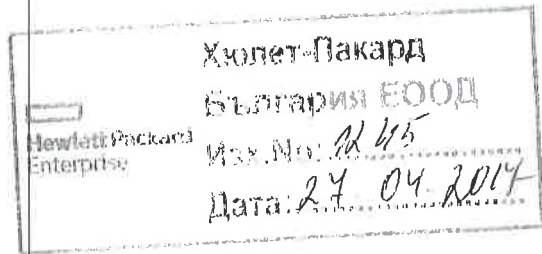 Хюлет-Пакард
България ЕООД
Hewlett Packard
Enterprise
Изх.No: 1245
Дата: 27 04 2017